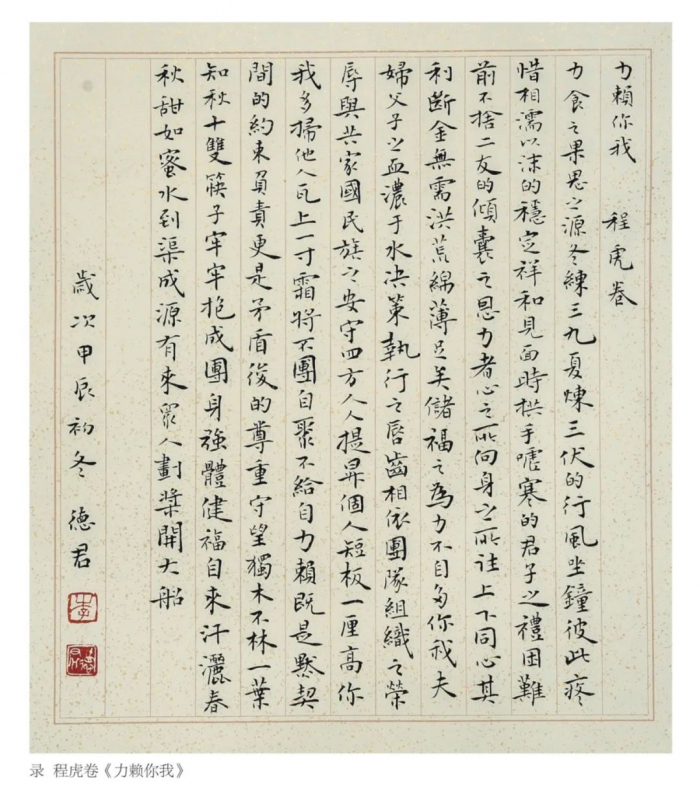 力賴你我 程虎卷
力食之果思之源冬練三九夏煉三伏的行風坐鐘彼此疼
惜相濡以沫的穩定祥和見面時拱手噓寒的君子之禮困難
前不捨二友的傾囊之恩力者心之所向身之所往上下同心其
利斷金無需洪荒綿薄足矣儲福之為力不自多你我夫
婦父子之血濃于水決策執行之唇齒相依團隊組織之榮
辱與共家國民族之安守四方人人提昇個人短板一厘高你
我多掃他人瓦上一寸霜將不團自聚不給自力賴既是默契
間的約束負責更是矛盾後的尊重守望獨木不林一葉
知秋十雙筷子牢牢抱成團身強體健福自來汗灑春
秋甜如蜜水到渠成源有來眾人劃槳開大船
歲次甲辰初冬 德君
李
德君
录 程虎卷《力赖你我》